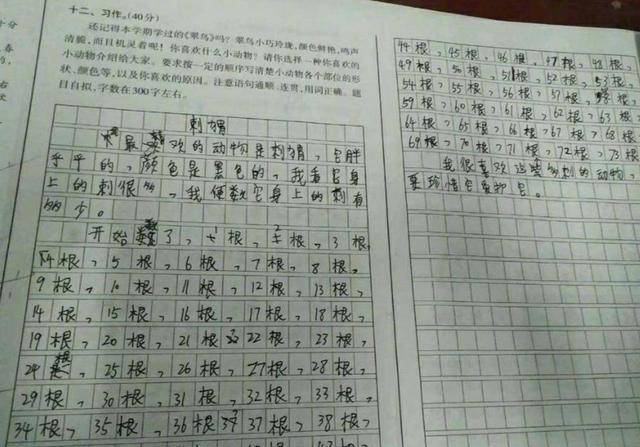 十二、习作。(40分)
还记得本学期学过的《翠鸟》吗?翠鸟小巧玲珑,颜色鲜艳,鸣声
清脆,而且机灵着呢!你喜欢什么小动物?请你选择一种你喜欢的
小动物介绍给大家。要求按一定的顺序写清楚小动物各个部位的形
状、颜色等,以及你喜欢的原因。注意语句通顺、连贯,用词正确。题
目自拟,字数在300字左右。
刺猬
我最喜欢的动物是刺猬,它胖
乎乎的,颜色是黑色的,我看它身
上的刺很多,我便数它身上的刺有
多少。
开始数了,1根,2根,3根,
4根,5根,6根,7根,8根,
9根,10根,11根,12根,13根,
14根,15根,16根,17根,18根,
19根,20根,21根,22根,23根,
24根,25根,26根,27根,28根,
29根,30根,31根,32根,33根,
34根,35根,36根,37根,38根,
44根,45根,46根,47根,48根,
49根,50根,51根,52根,53根,
54根,55根,56根,57根,58根,
59根,60根,61根,62根,63根,
64根,65根,66根,67根,68根,
69根,70根,71根,72根,73根
我很喜欢这多刺的动物,
要珍惜它爱护它。